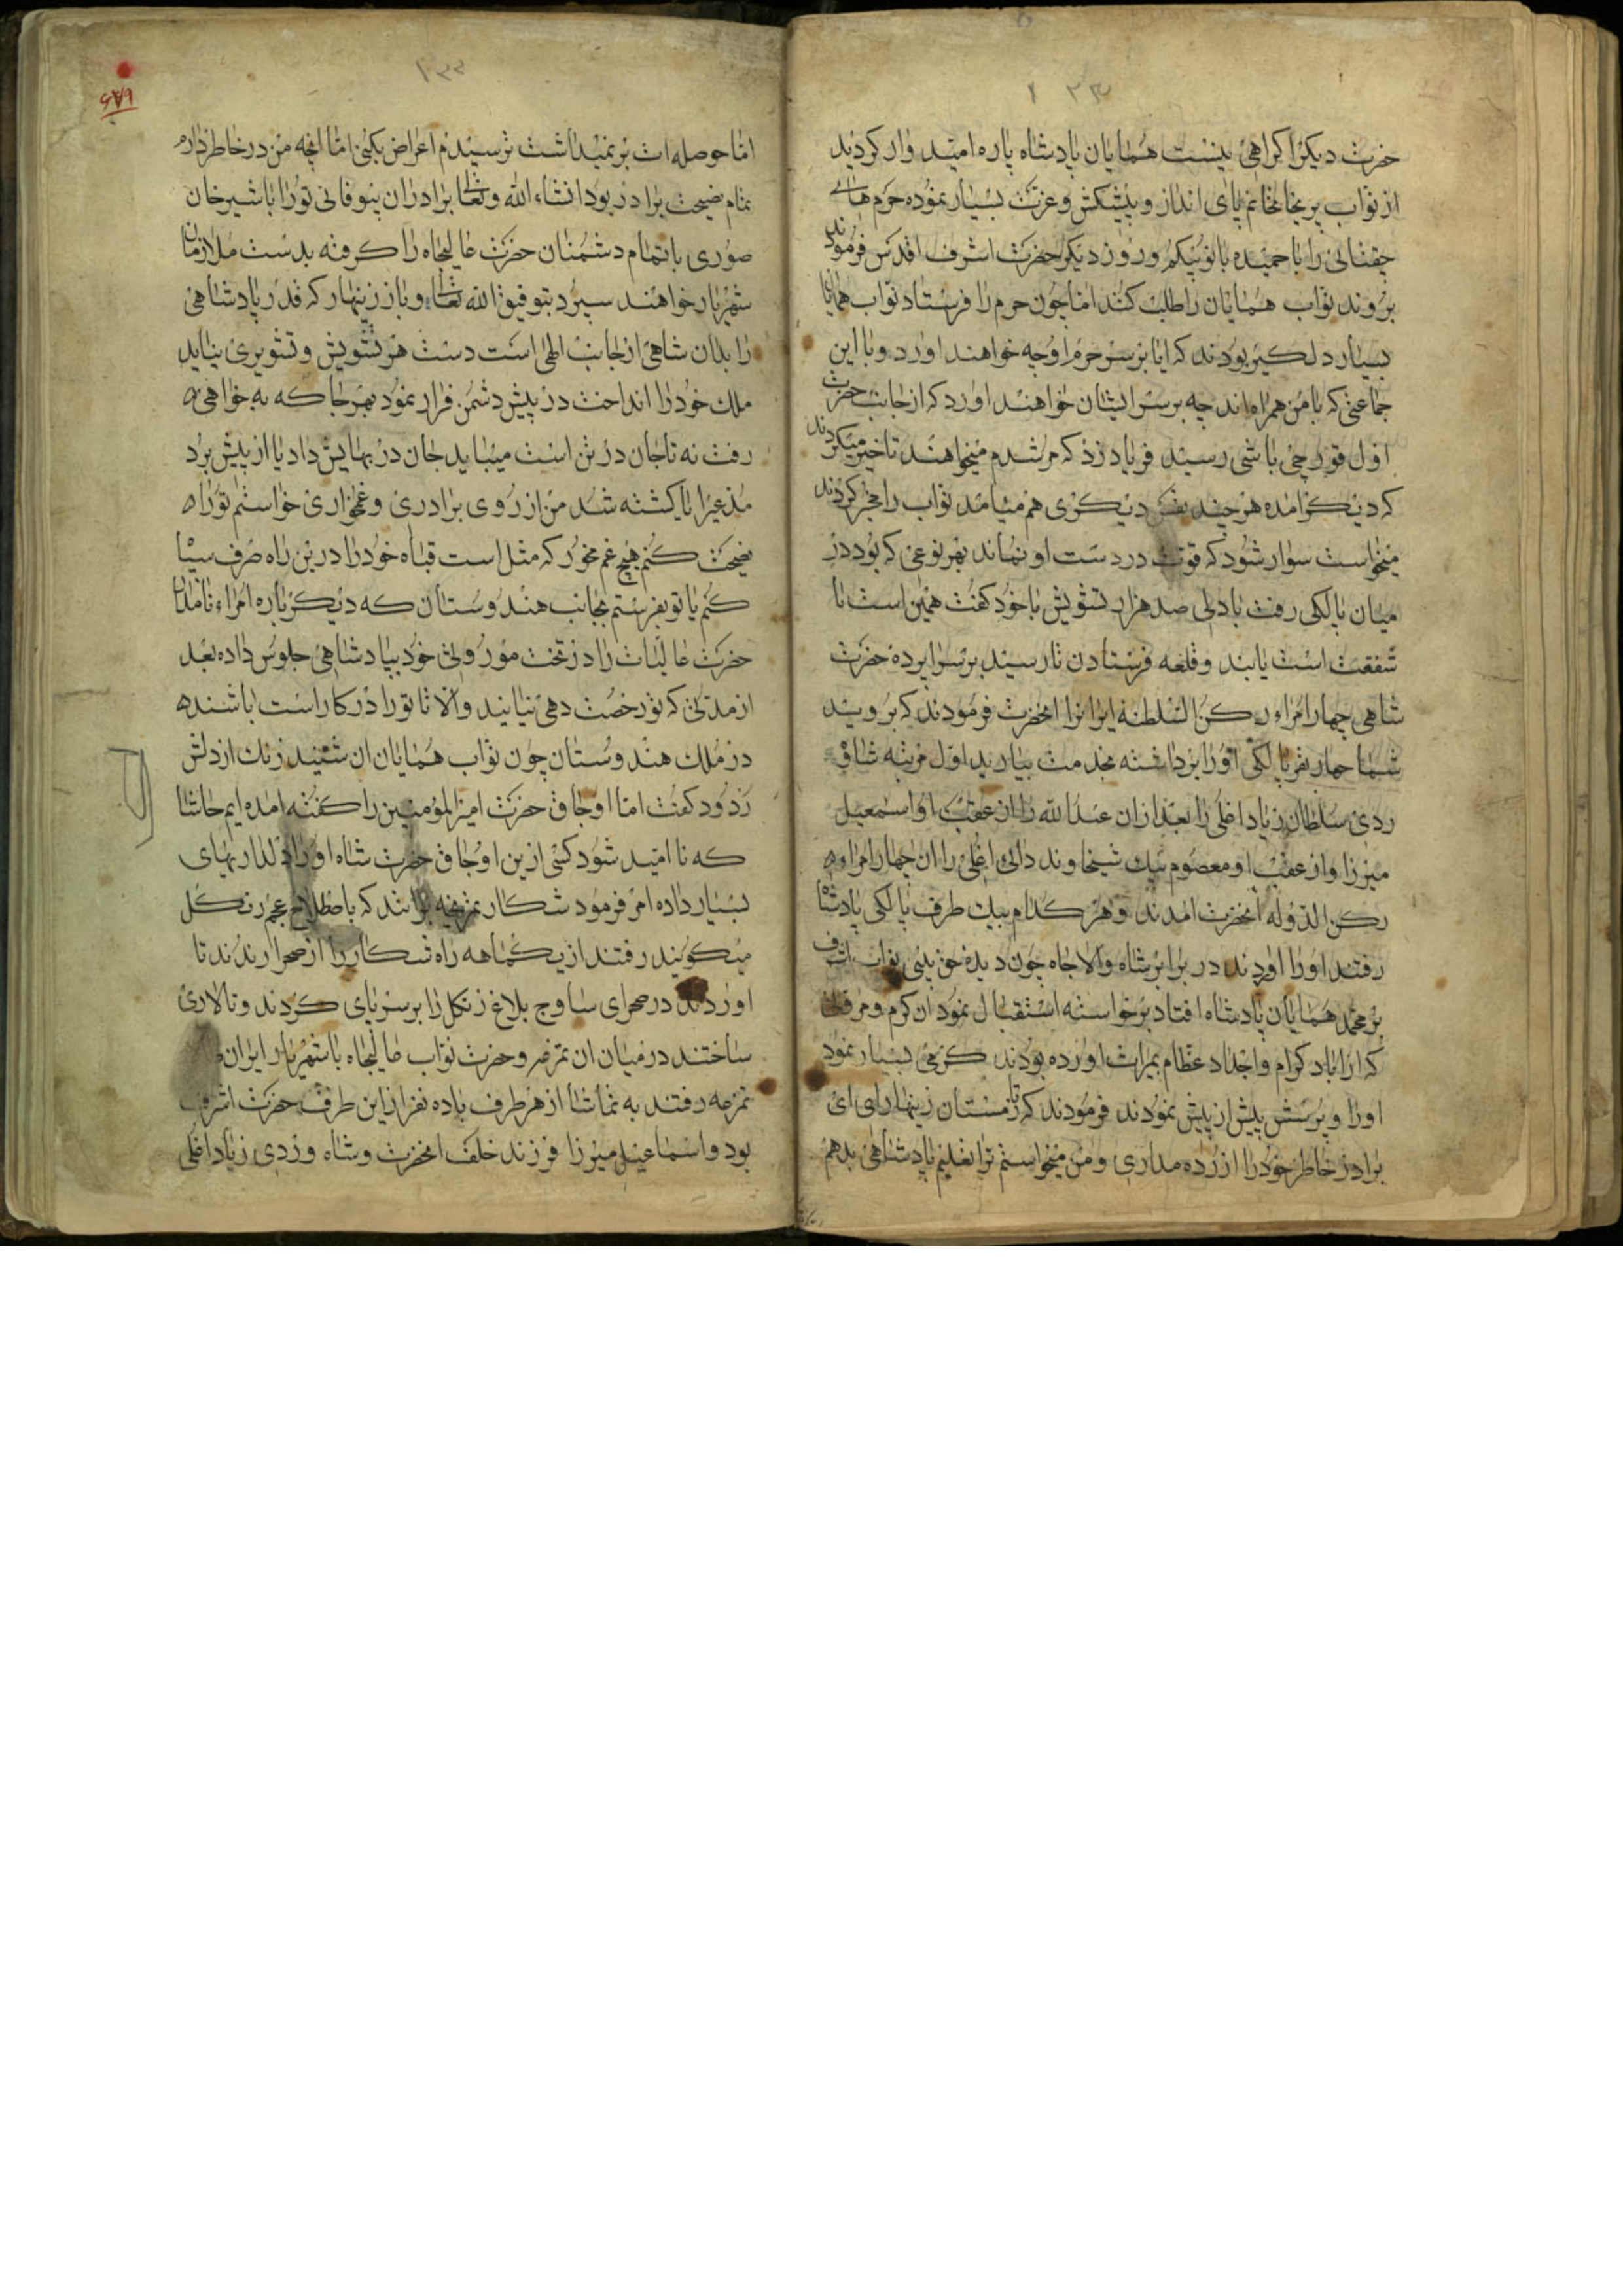 ۱۳۳
حضرت دیکر اکراهی نیست همایان پادشاه پاره امید وار کردید
از نواب پریخانخانم پای انداز و پیشکش و عزت بسیار نموده حرم هاى
چقتائی را با حمیده بانو بیکم و روز دیکر حضرت اشرف اقدس فرمودند
بروند نواب همایان را طلب کنند اما چون حرم را فرستاد نواب همایان
بسیار دلکیر بودند که ایا بر سر حرم او چه خواهند اورد و با این
جماعتی که با من همراه اند چه بر سر ایشان خواهند اورد که از جانب حضرت
اول قورچی باشی رسید فریاد زد که مرشدم میخواهند تاخیر میکردند
که دیکر امده هر چند نفس دیکری هم میامد نواب را مخبر کردند
میخواست سوار شود که قوت در دست او نماند بهر نوعی که بود در
میان پالکی رفت با دلی صد هزار تشویش با خود کفت همین است تا
شفقت است یابند و قلعه فرستادن تا رسید بر سرا پرده حضرت
شاهی چهار امراء رکن السلطنه ایرانرا انحضرت فرمودند که بروید
شما چهار نفر پالکی اورا برداشته بخدمت بیارید اول مرتبه شاه
ردی سلطان زیاد اغلی را بعد ازان عبد الله را از عقب او اسمعیل
میرزا و از عقب او معصوم بیک شیخاوند دالی اغلی را ان چهار امراء
رکن الدوله انحضرت امدند و هر کدام بیک طرف پالکی پادشاه
رفتند اورا اوردند در برابر شاه والا جاه چون دیده حق بینی نواب اشرف
بر محمد همایان پادشاه افتاد برخواسته استقبال نمود ان کرم و مر
که از اباد کرام و اجداد عظام بمیراث اورده بودند کرمی بسیار نمود
اورا و پرسش پیش از پیش نمودند فرمودند که تا زمستان زینهار ای
برادر خاطر خود را ازرده مداری و من میخواستم ترا تعلیم پادشاهی بدهم
۱۳۳
۶۷۹
اما حوصله ات بر نمیداشت ترسیدم اعراض بکنی اما انچه من در خاطر دارم
تمام نصیحت برادر بود انشاء الله و تعالی برادران بیوفائی تورا با شیر خان
صوری با تمام دشمنان حضرت عالیجاه را کرفته بدست ملازمان
شهریار خواهند سپرد بتوفیق الله تعالی و باز زینهار که قدر پادشاهی
را بدان شاهی از جانب الهی است دست هر تشویش و تشویری بیاید
ملک خود را انداخت در پیش دشمن فرار نمود بهر جا که به خواهی
رفت نه تا جان در تن است میباید جان در بهایش داد یا از پیش برد
مدعیرا یا کشته شد من از روی برادری و غمخواری خواستم تورا
نصیحت کنم هیچ غم مخور که مثل است قباه خود را درین راه صرف سپا
کنم یا تو بفرستم بجانب هندوستان که دیکر باره امراء نامدار
حضرت عالیات را در تخت موروثی خود بپادشاهی جلوس داده بعد
از مدتی که تو رخصت دهی بیایند والا تا تورا در کار است باشند
در ملک هندوستان چون نواب همایان ان شنید زنک از دلش
زدود کفت اما اوجاق حضرت امیر المؤمنین را کفته امده ایم حاشا
که نا امید شود کسی ازین اوجاق حضرت شاه اورا دلداریهای
بسیار داده امر فرمود شکار برانند که باصطلاح عجم رنکل
میکویند رفتند از یکماهه راه شکار را از صحرا راندند تا
اوردند در صحرای ساوج بلاغ زنکل را بر سر پای کردند و تالاری
ساختند در میان ان تمزمر و حضرت نواب عالیجاه با شهریار ایران
تمزمه رفتند به تماشا از هر طرف باده نفر از این طرف حضرت اشرف
بود و اسماعیل میرزا فرزند خلف انحضرت و شاه وردی زیاد اغلی